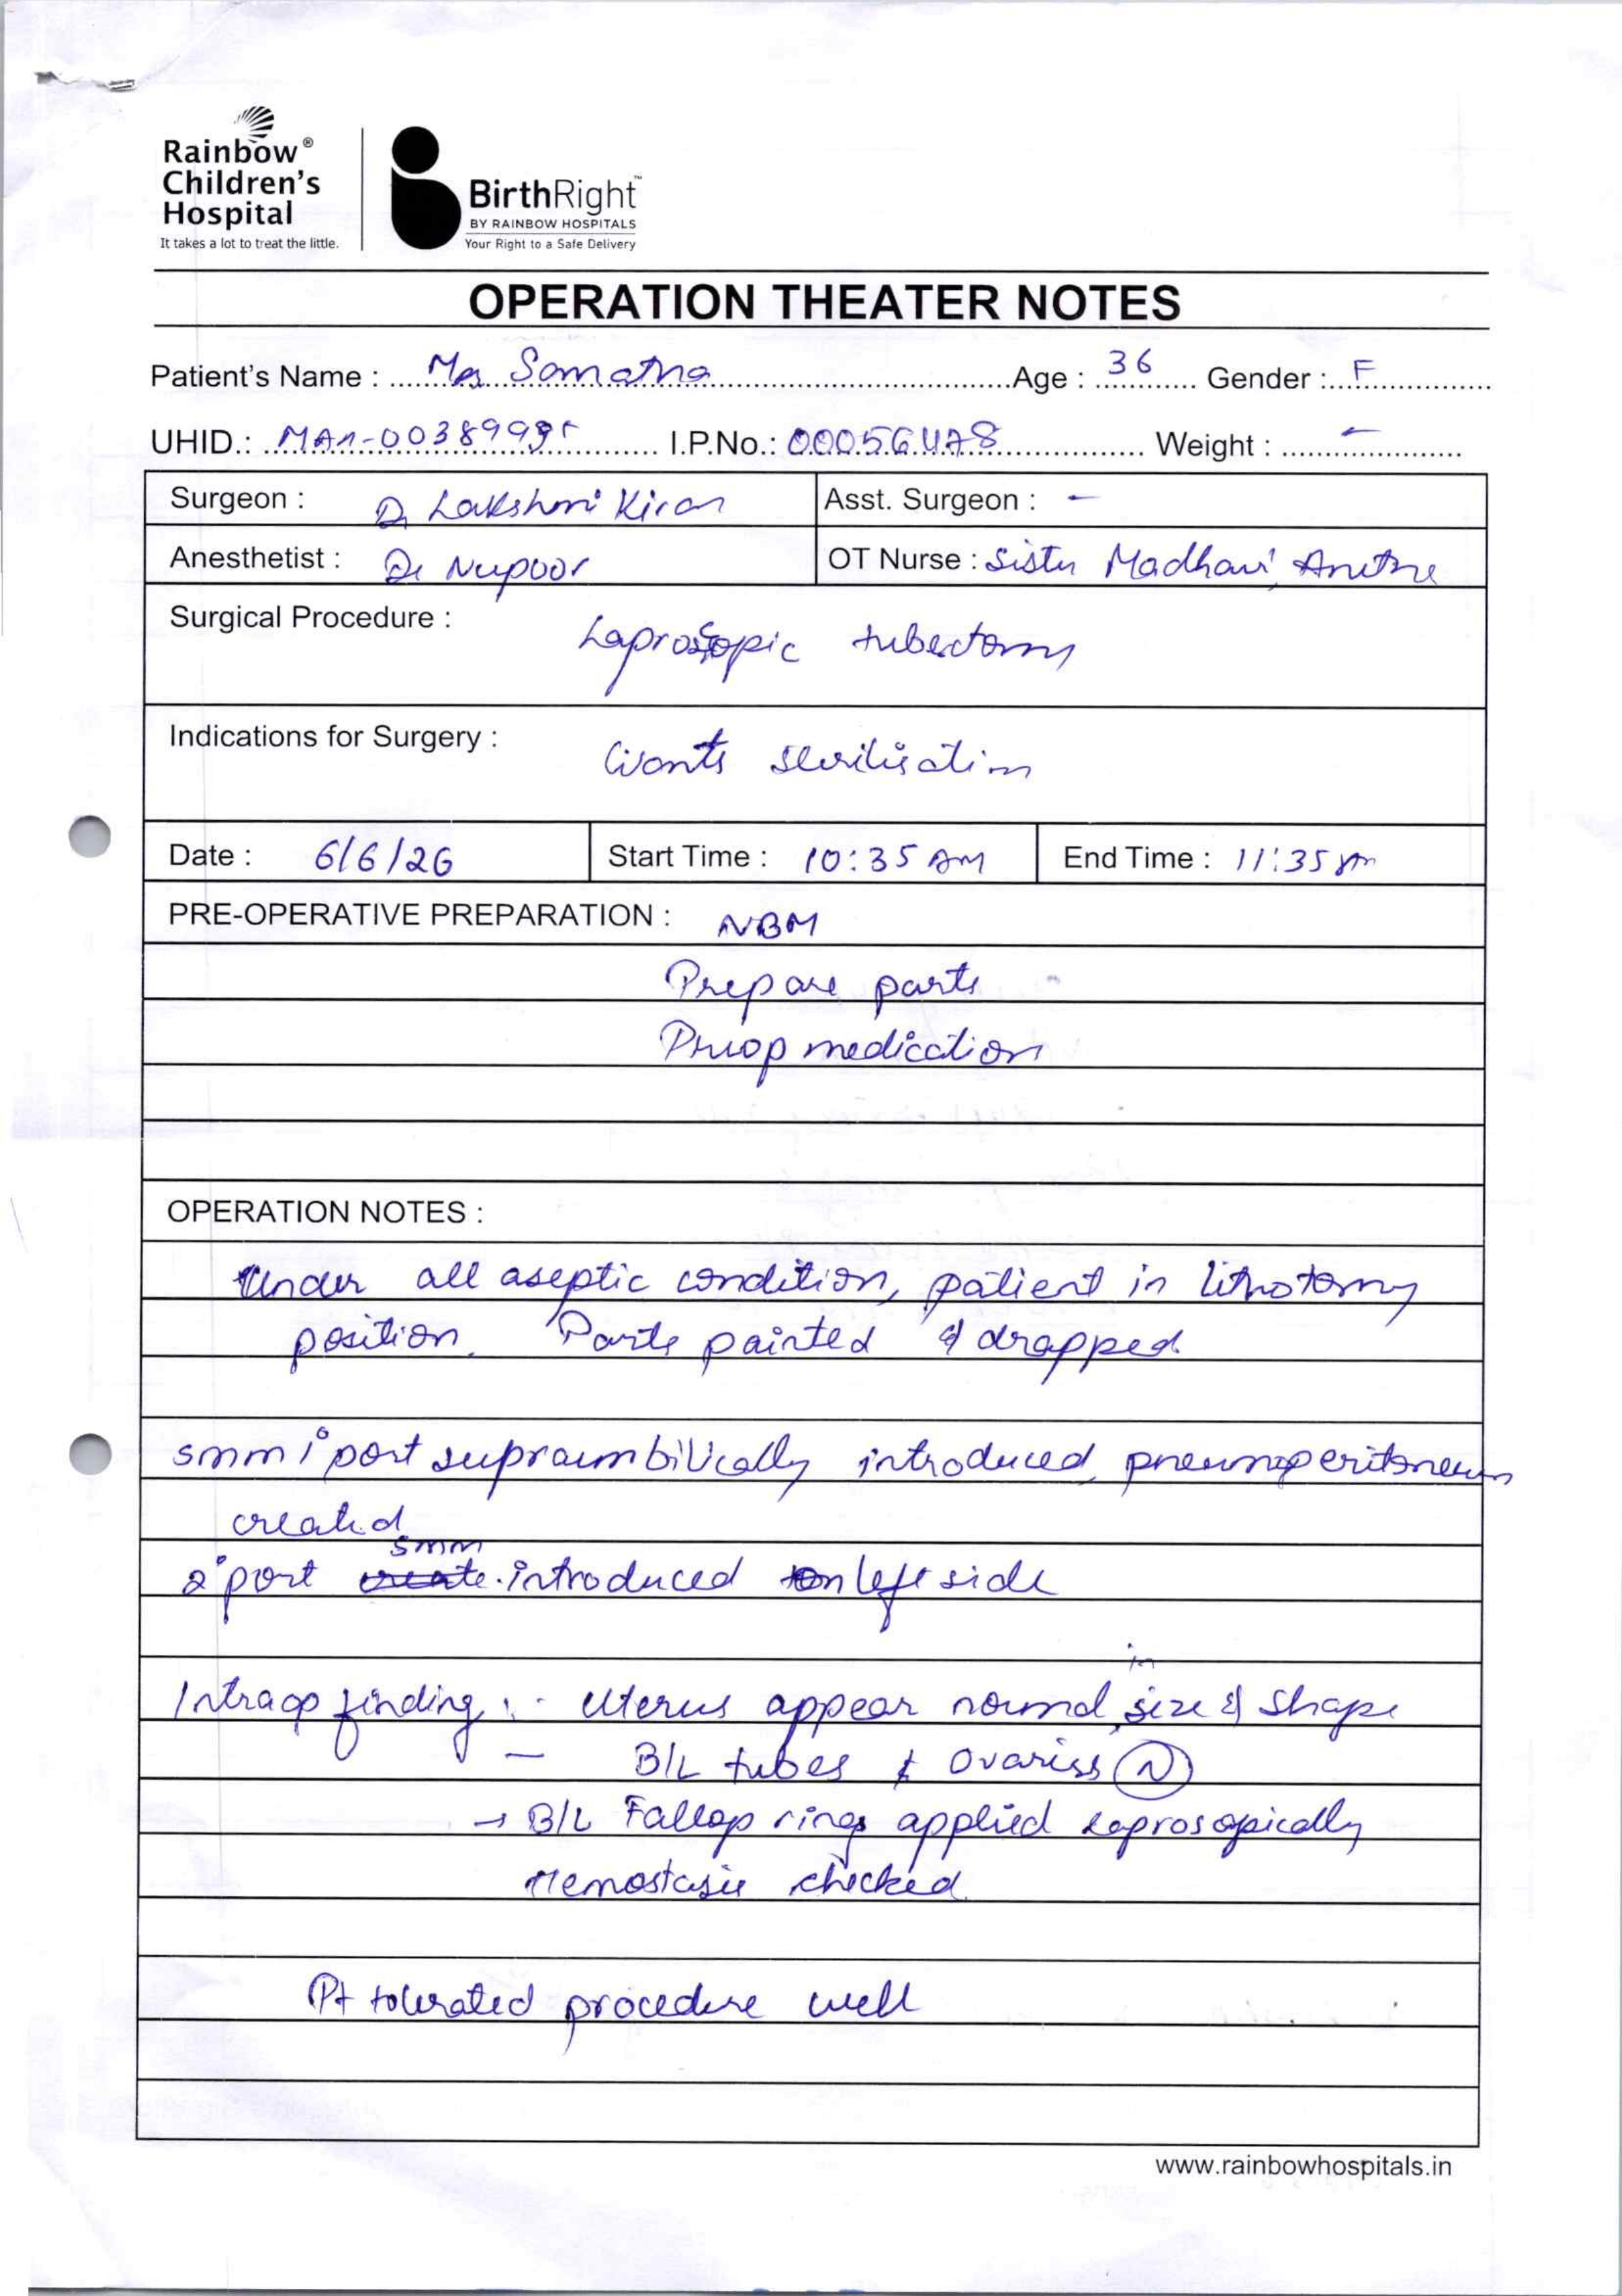 Rainbow®
Children's
Hospital
It takes a lot to treat the little.
BirthRight™
BY RAINBOW HOSPITALS
Your Right to a Safe Delivery
OPERATION THEATER NOTES
Patient's Name : Mrs Samatha Age : 36 Gender : F
UHID.: I.P.No.: Weight : -
Surgeon : Dr Lakshmi Kiran Asst. Surgeon : -
Anesthetist : Dr Nupoor OT Nurse : Sister Madhavi, Anitha
Surgical Procedure : Laproscopic tubectomy
Indications for Surgery : Wants sterilisation
Date : 6/6/26 Start Time : 10:35 AM End Time : 11:35
PRE-OPERATIVE PREPARATION : NBM
Prepare parts
Preop medication
OPERATION NOTES :
Under all aseptic condition, patient in lithotomy
position. Parts painted & drapped
5mm 1° port supraumbilically introduced, pneumoperitoneum
created
5mm
2° port create introduced on left side
in
Intraop finding :- Uterus appear normal size & shape
- B/L tubes & ovariess (N)
→ B/L Fallop rings applied laprosopically
Hemostasis checked
Pt tolerated procedure well
www.rainbowhospitals.in